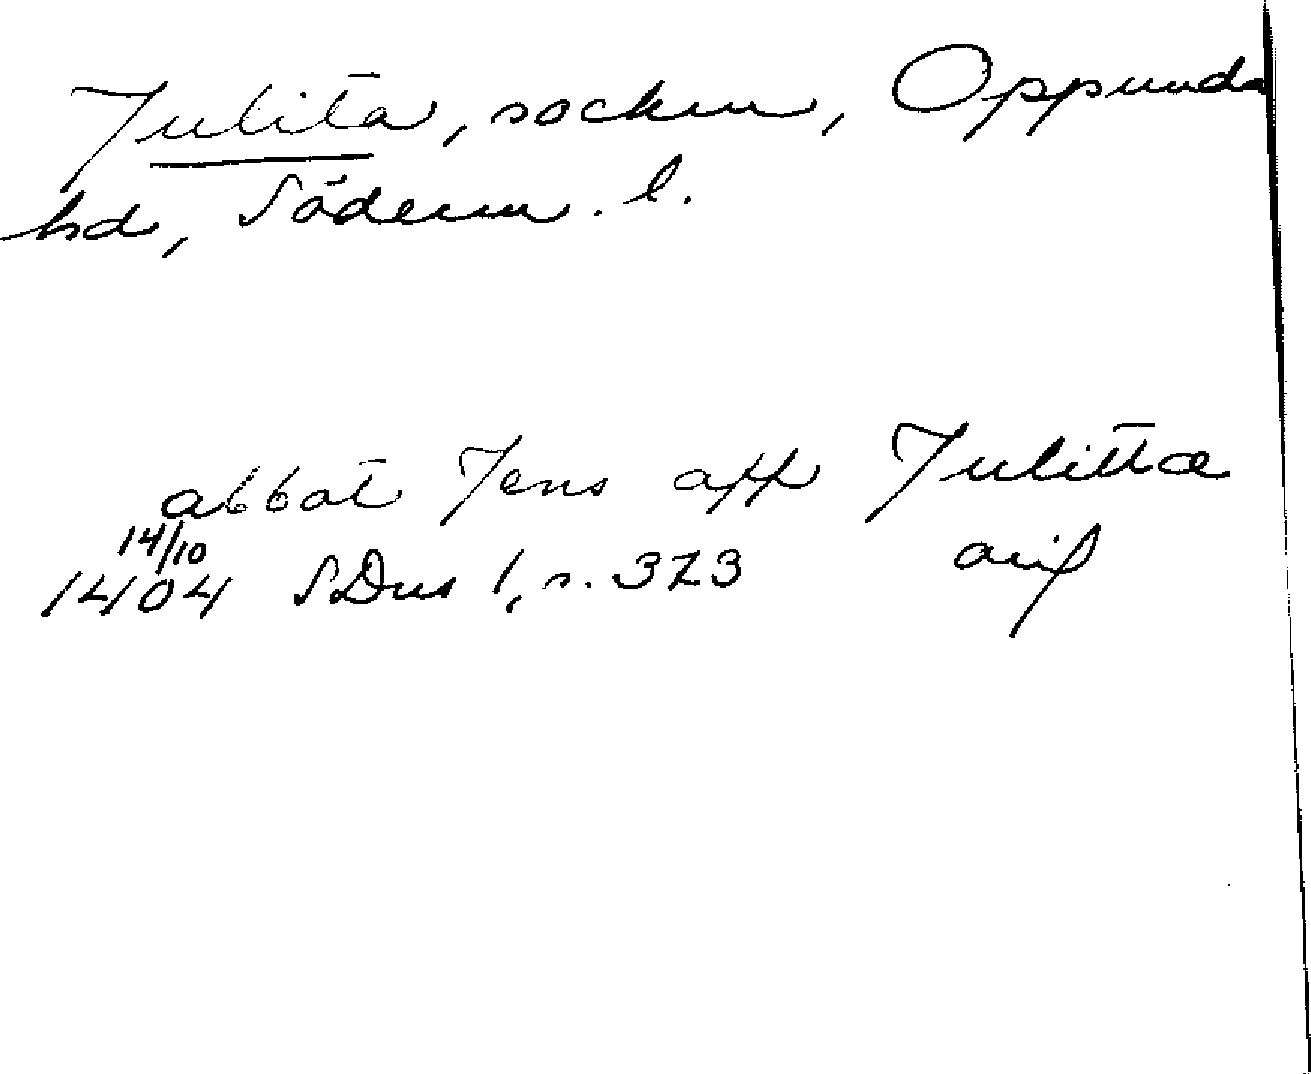 Julita, socken, Oppunda
hd, Söderm. l.
abbot Jens aff Julittæ
14/10
1404 SDns 1, s. 323 avif